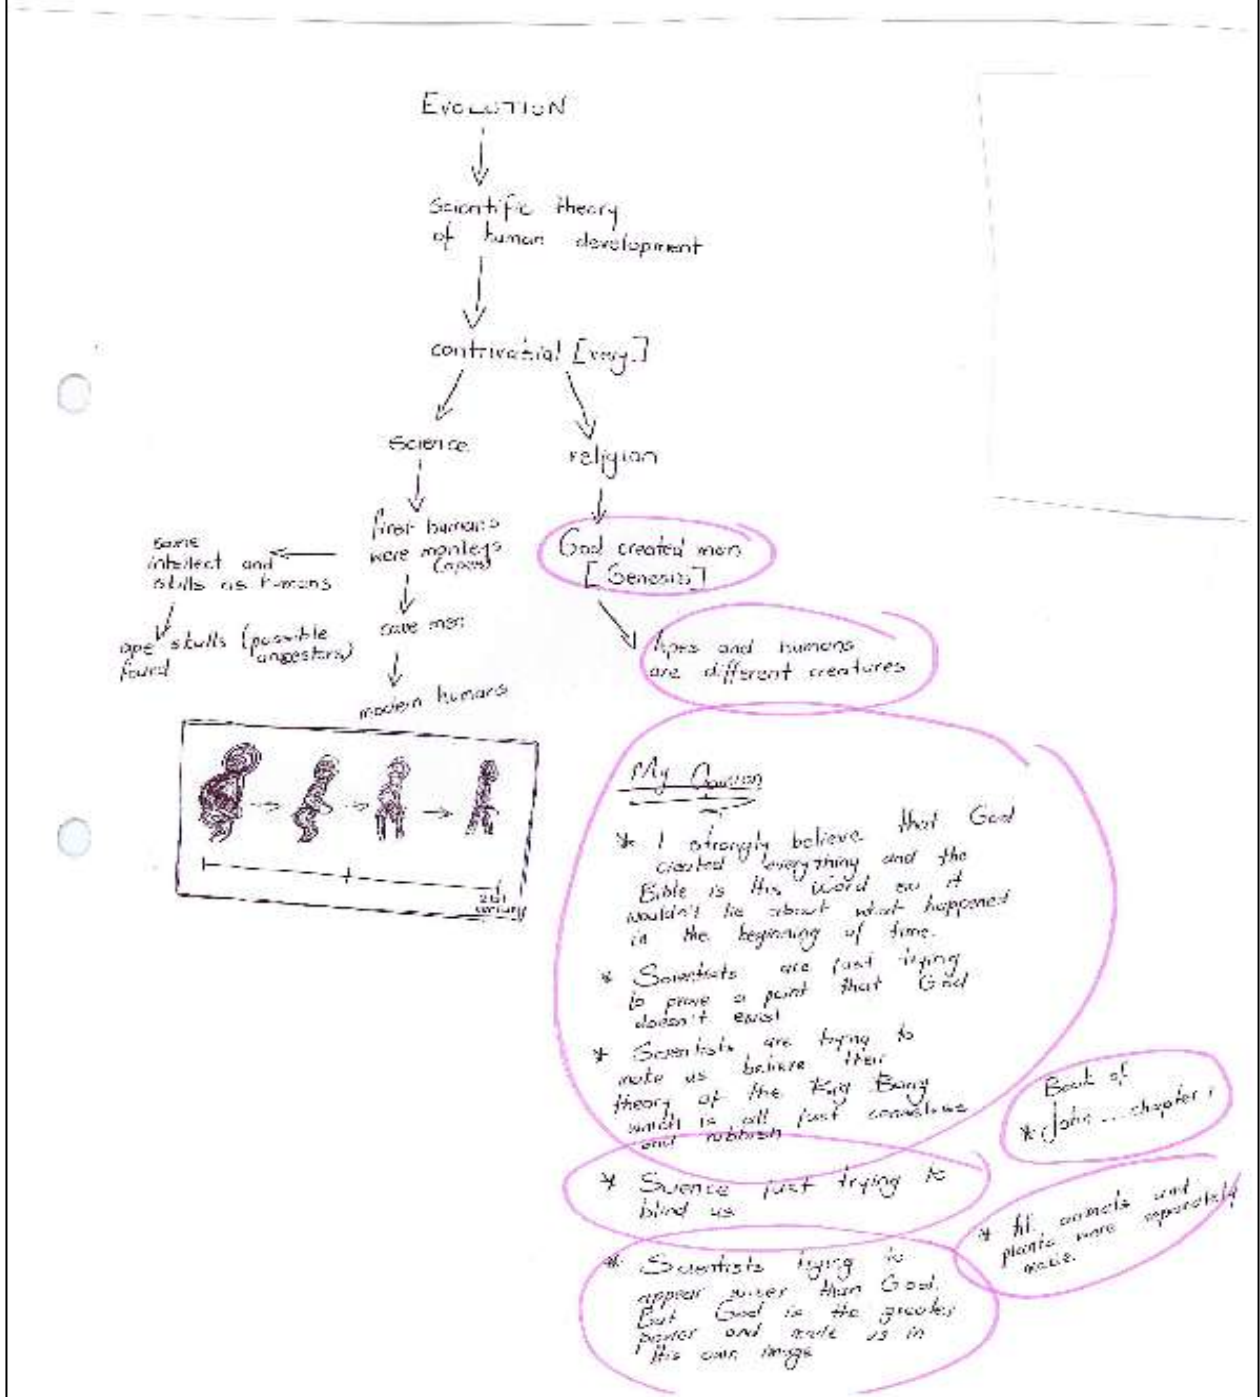 EVOLUTION
Scientific theory
of human development
contrivatial [very.]
science
religion
first humans
were monkeys
(apes)
same
intellect and
skills as humans
ape skulls (possible
ancestors)
found
cave men
modern humans
21st
century
God created man
[Genesis]
Apes and humans
are different creatures
My Opinion
* I strongly believe that God
created everything and the
Bible is His Word so it
wouldn't lie about what happened
in the beginning of time.
* Scientists are just trying
to prove a point that God
doesn't exist
* Scientists are trying to
make us believe their
theory of the Big Bang
which is all just
and rubbish
Book of
* John ... chapter 1
* Science just trying to
blind us
* All animals and
plants were separately
made.
* Scientists trying to
appear wiser than God.
But God is the greater
power and made us in
His own image